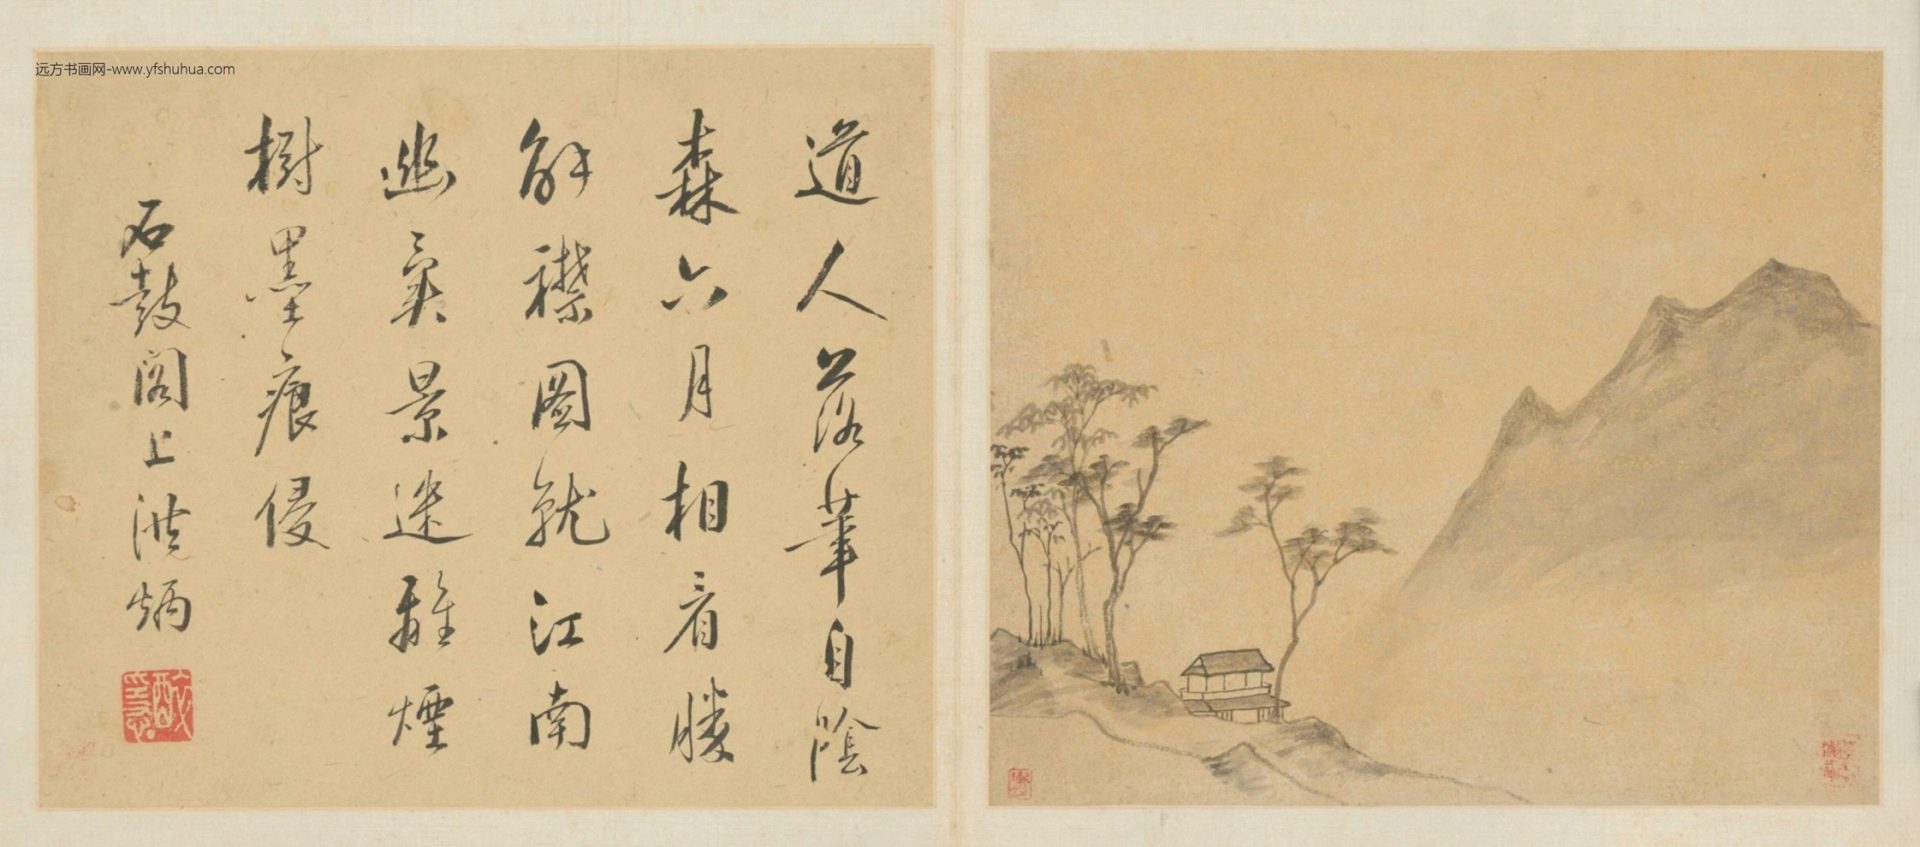 远方书画网-www.yfshuhua.com
道人落筆自陰
森六月相看勝
解襟圖就江南
幽氣景迷離煙
樹墨痕侵
石鼓閣上洪炳